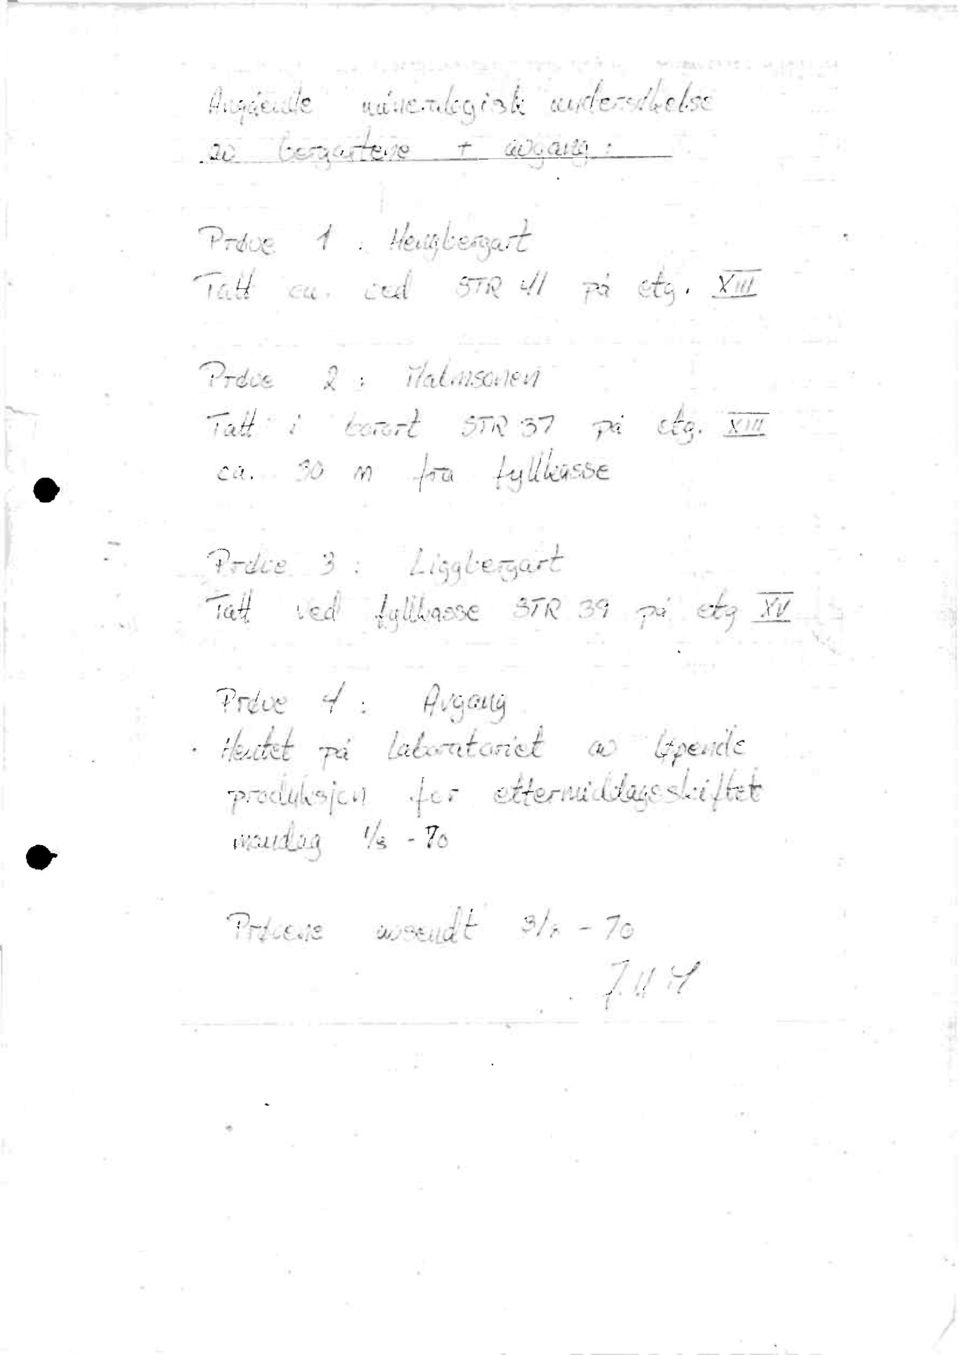 Angående mineralogisk undersökelse
av bergartene + avgang :
Pröve 1 : Hengbergart
Tatt ca. ved STR 41 på etg. XIII
Pröve 2 : Malmsonen
Tatt i borort STR 37 på etg. XIII
ca. 30 m fra fyllkasse
Pröve 3 : Liggbergart
Tatt ved fyllkasse STR 39 på etg XV
Pröve 4 : Avgang
Hentet på laboratoriet av löpende
produksjon for ettermiddagsskiftet
mandag - 70
Prövene avsendt - 70